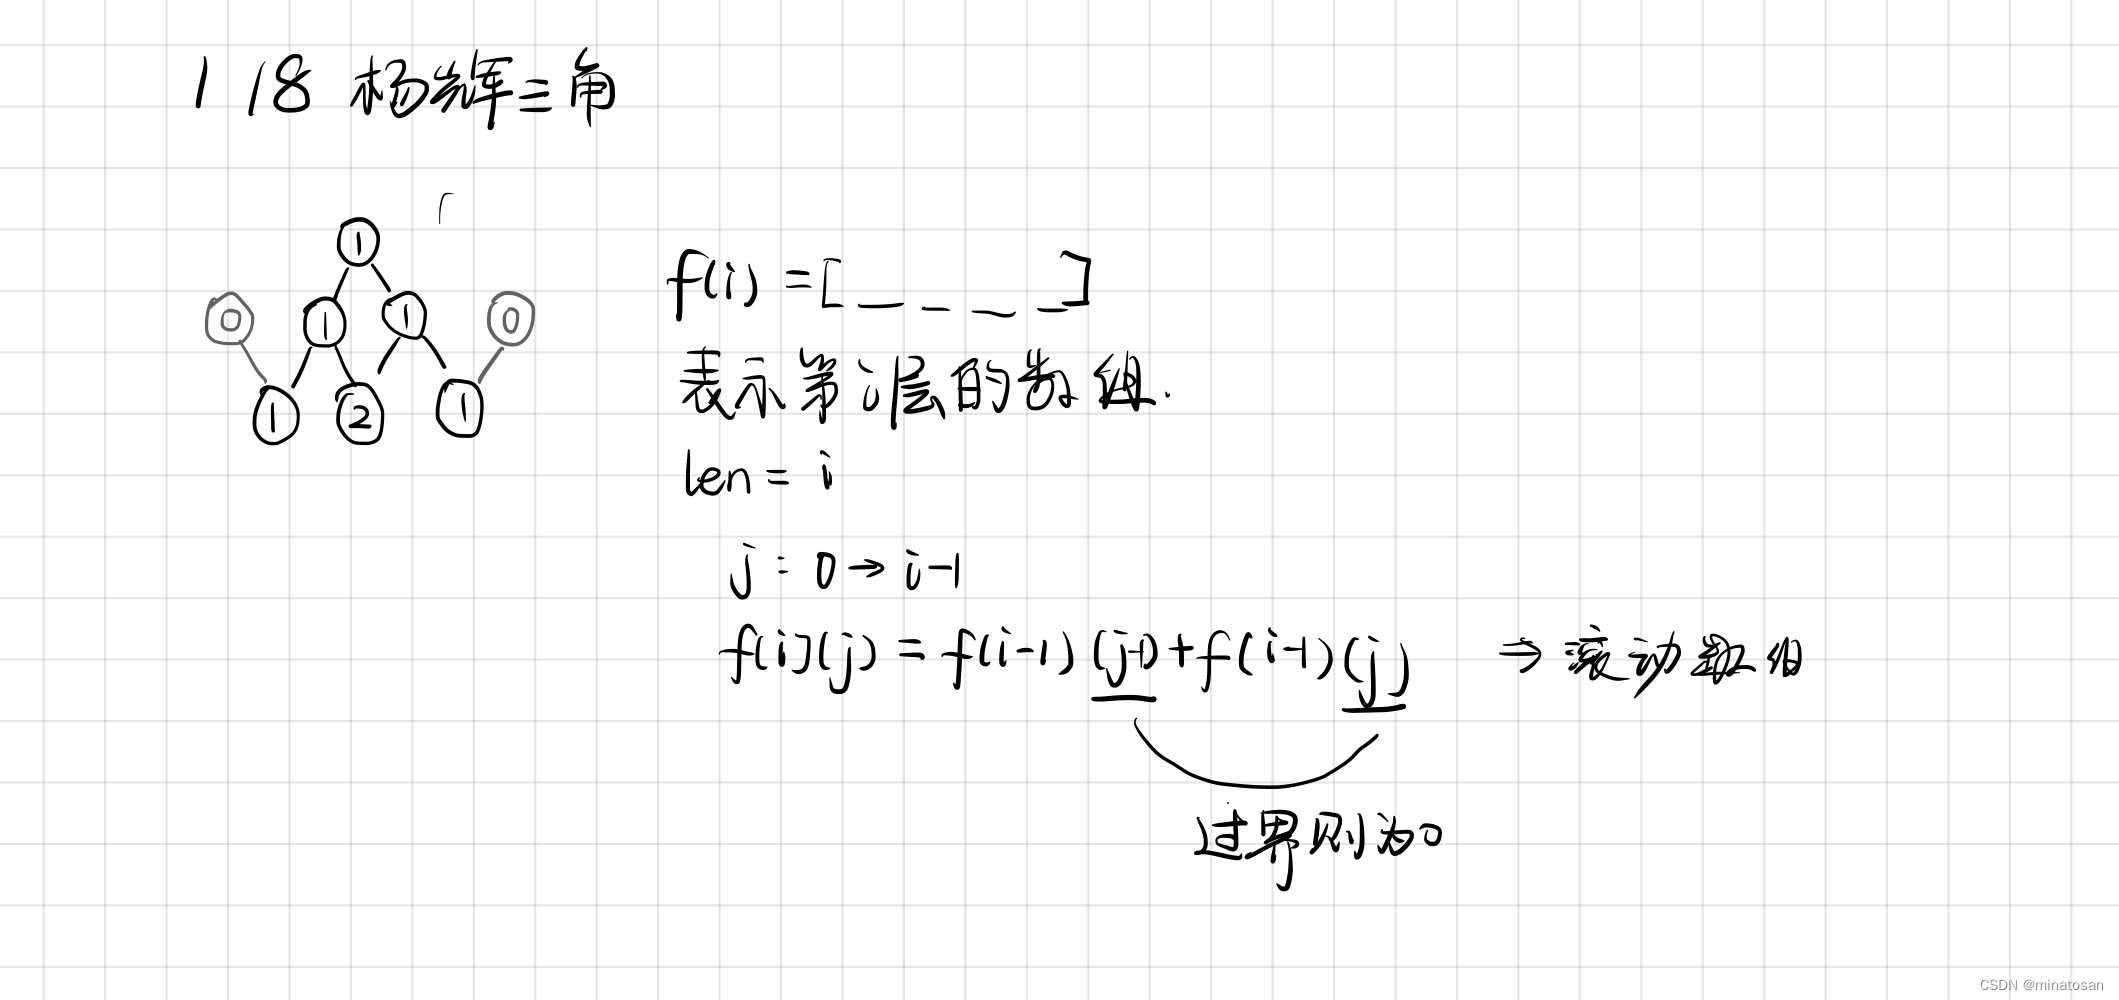 118 杨辉三角
1
0 1 1 0
1 2 1
f(i) = [ _ _ _ _ ]
表示第i层的数组.
len = i
j : 0 → i-1
f(i)(j) = f(i-1)(j-1)+f(i-1)(j) ⇒ 滚动数组
过界则为0
CSDN @minatosan